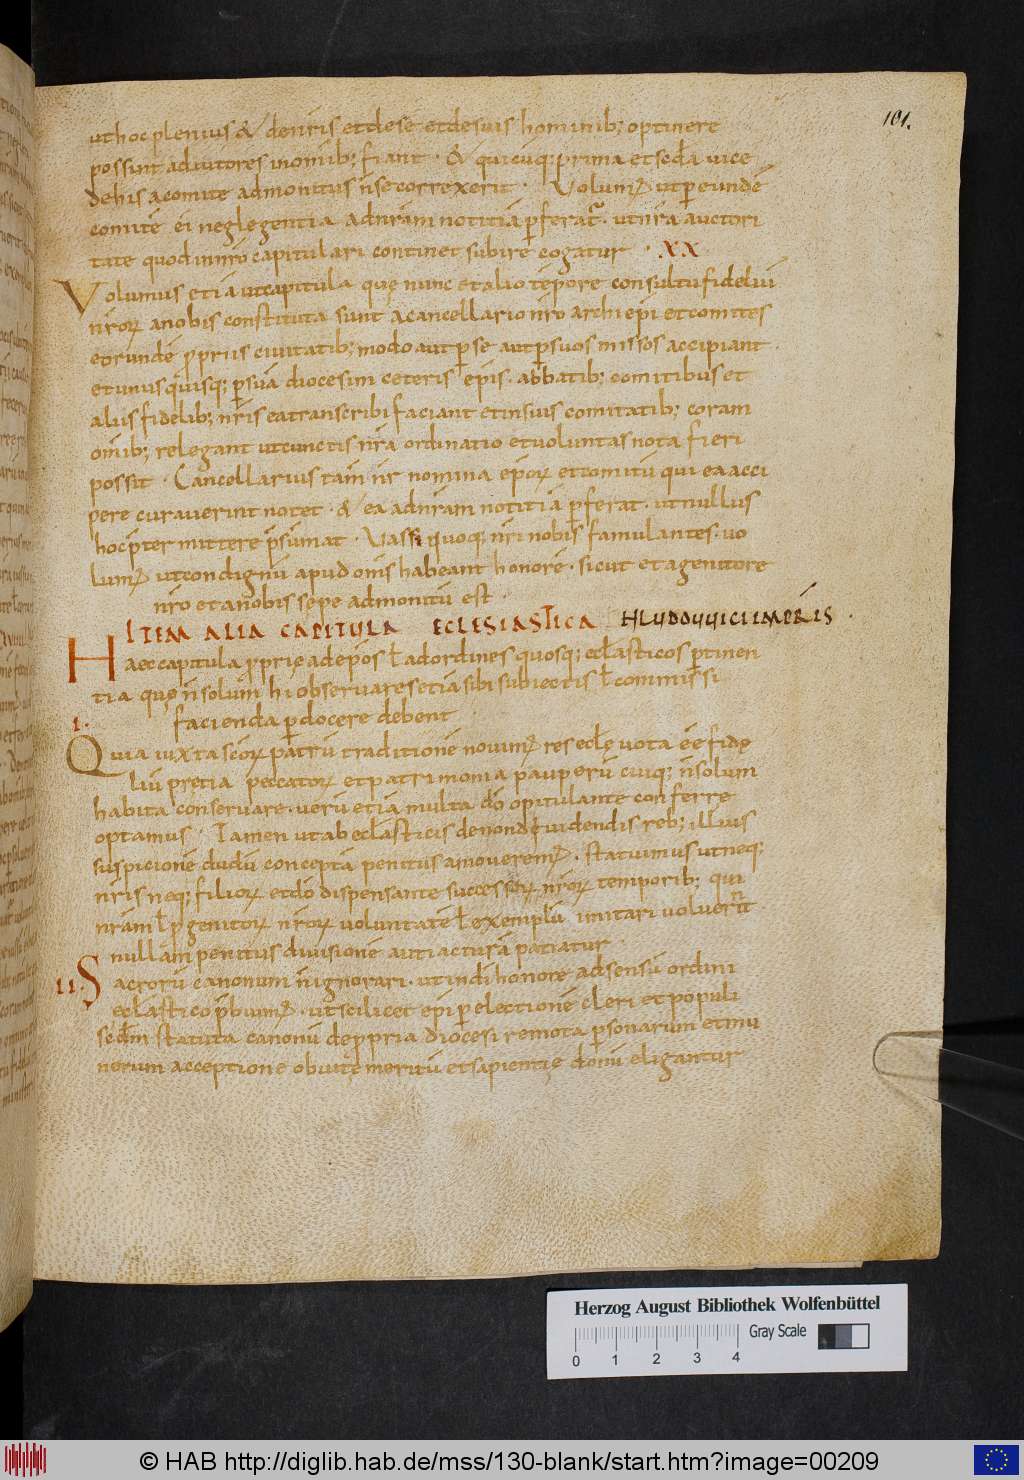 101.
ut hoc plenius & de nr̄is et de se et de suis hominib; optinere
possint adiutores in om̄ib; fiant · & quicūq; prima et secd̄a vice
de his a comite admonitus n̄ se correxerit · Volum᷒ ut ꝑ eundē
comitē ei neglegentia ad nr̄am notitiā ꝑferat᷒ · ut nr̄a auctori
tate quod in nr̄o capitulari continet subire cogatur · XX
Volumus etiā ut capitula quę nunc et alio tēpore consultu fideliū
nr̄oꝝ a nobis constituta sunt a cancellario nr̄o archiepī et comites
eorundē ꝓpriis civitatib; modo aut ꝑ se aut ꝑ suos missos accipiant ·
et unusquisq; ꝑ suā diocesim ceteris epīs · abbatib; comitibus et
aliis fidelib; nr̄is ea transcribi faciant et in suis comitatib; coram
om̄ib; relegant ut cunctis nr̄a ordinatio et voluntas nota fieri
possit · Cancellarius tam̄ nr̄ nomina epōꝝ et comitū qui ea acci
pere curaverint notet · & ea ad nr̄am notitiā ꝑferat · ut nullus
hoc p̄termittere p̄sumat · Vassi quoq; nr̄i nobis famulantes · vo
lum᷒ ut condignū apud om̄s habeant honorē · sicut et a genitore
nr̄o et a nobis sepe admonitū est ·
ITEM ALIA CAPITULA ECLESIASTICA HLUDOVVICI IMPRĪS ·
Haec capitula ꝓprię ad epōs ł ad ordines quosq; ecl̄asticos ꝑtinen
tia quę n̄ solum hi observare set iā sibi subiectis ł commissi
facienda ꝑdocere debent
I.
Quia iuxta sc̄oꝝ patrū traditionē novim᷒ res eclę vota ēē fide
liū pretia peccatoꝝ et patrimonia pauperū cuiq; n̄ solum
habita conservare · verū etiā multa dō opitulante conferre
optamus · Tamen ut ab ecl̄asticis de non dividendis reb; illius
suspicionē dudū conceptā penitus amoverem᷒ · statuimus ut neq;
nr̄is neq; filioꝝ et dō dispensante successoꝝ nr̄oꝝ temporib; qui
nr̄am ł ꝓgenitoꝝ nr̄oꝝ voluntatē ł exemplū imitari voluerīt
nullam penitus divisionē aut iacturā patiatur ·
II. Sacrorū canonum n̄ ignorari · ut in dī honore adsensū ordini
ecl̄astico p̄bum᷒ · ut scilicet epī ꝑ electionē cleri et populi
secd̄m statuta canonū de ꝓpria diocesi remota ꝑsonarum et mu
nerum acceptione ob vitę meritū et sapientię donū eligantur
Herzog August Bibliothek Wolfenbüttel
Gray Scale
0 1 2 3 4
© HAB http://diglib.hab.de/mss/130-blank/start.htm?image=00209